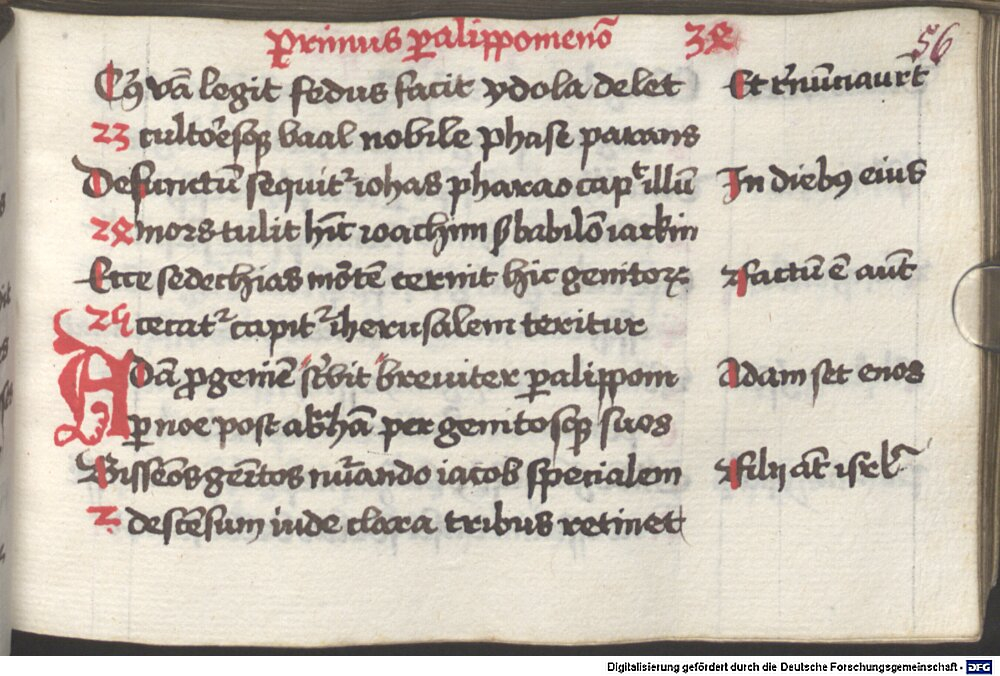 Primus p̲alippomenō 38 56
Cū vā legit fedus facit ydola delet Et r̄nūciaver̄t
23 cultoēsq̄ baal nobile phase parans
Defunctū sequit᷑ iohas pharao cap̄t illū In diebꝯ eius
28 mors tulit hīc ioachim babilō iackin
Ecce sedechias mōtē cernit hic genitoꝝ Factū ē aūt
24 cecat᷑ capit᷑ iherusalem teritur
Adā ꝓgeniē sc̄bit breviter ꝑalippom Adam set enos
ꝑ noe post abrhā per genitosq̄ suos
Bissēos gētos nūando iacob specialem Filij aūt isrl̄
2 descēsum inde clara tribus retinet
Digitalisierung gefördert durch die Deutsche Forschungsgemeinschaft - DFG